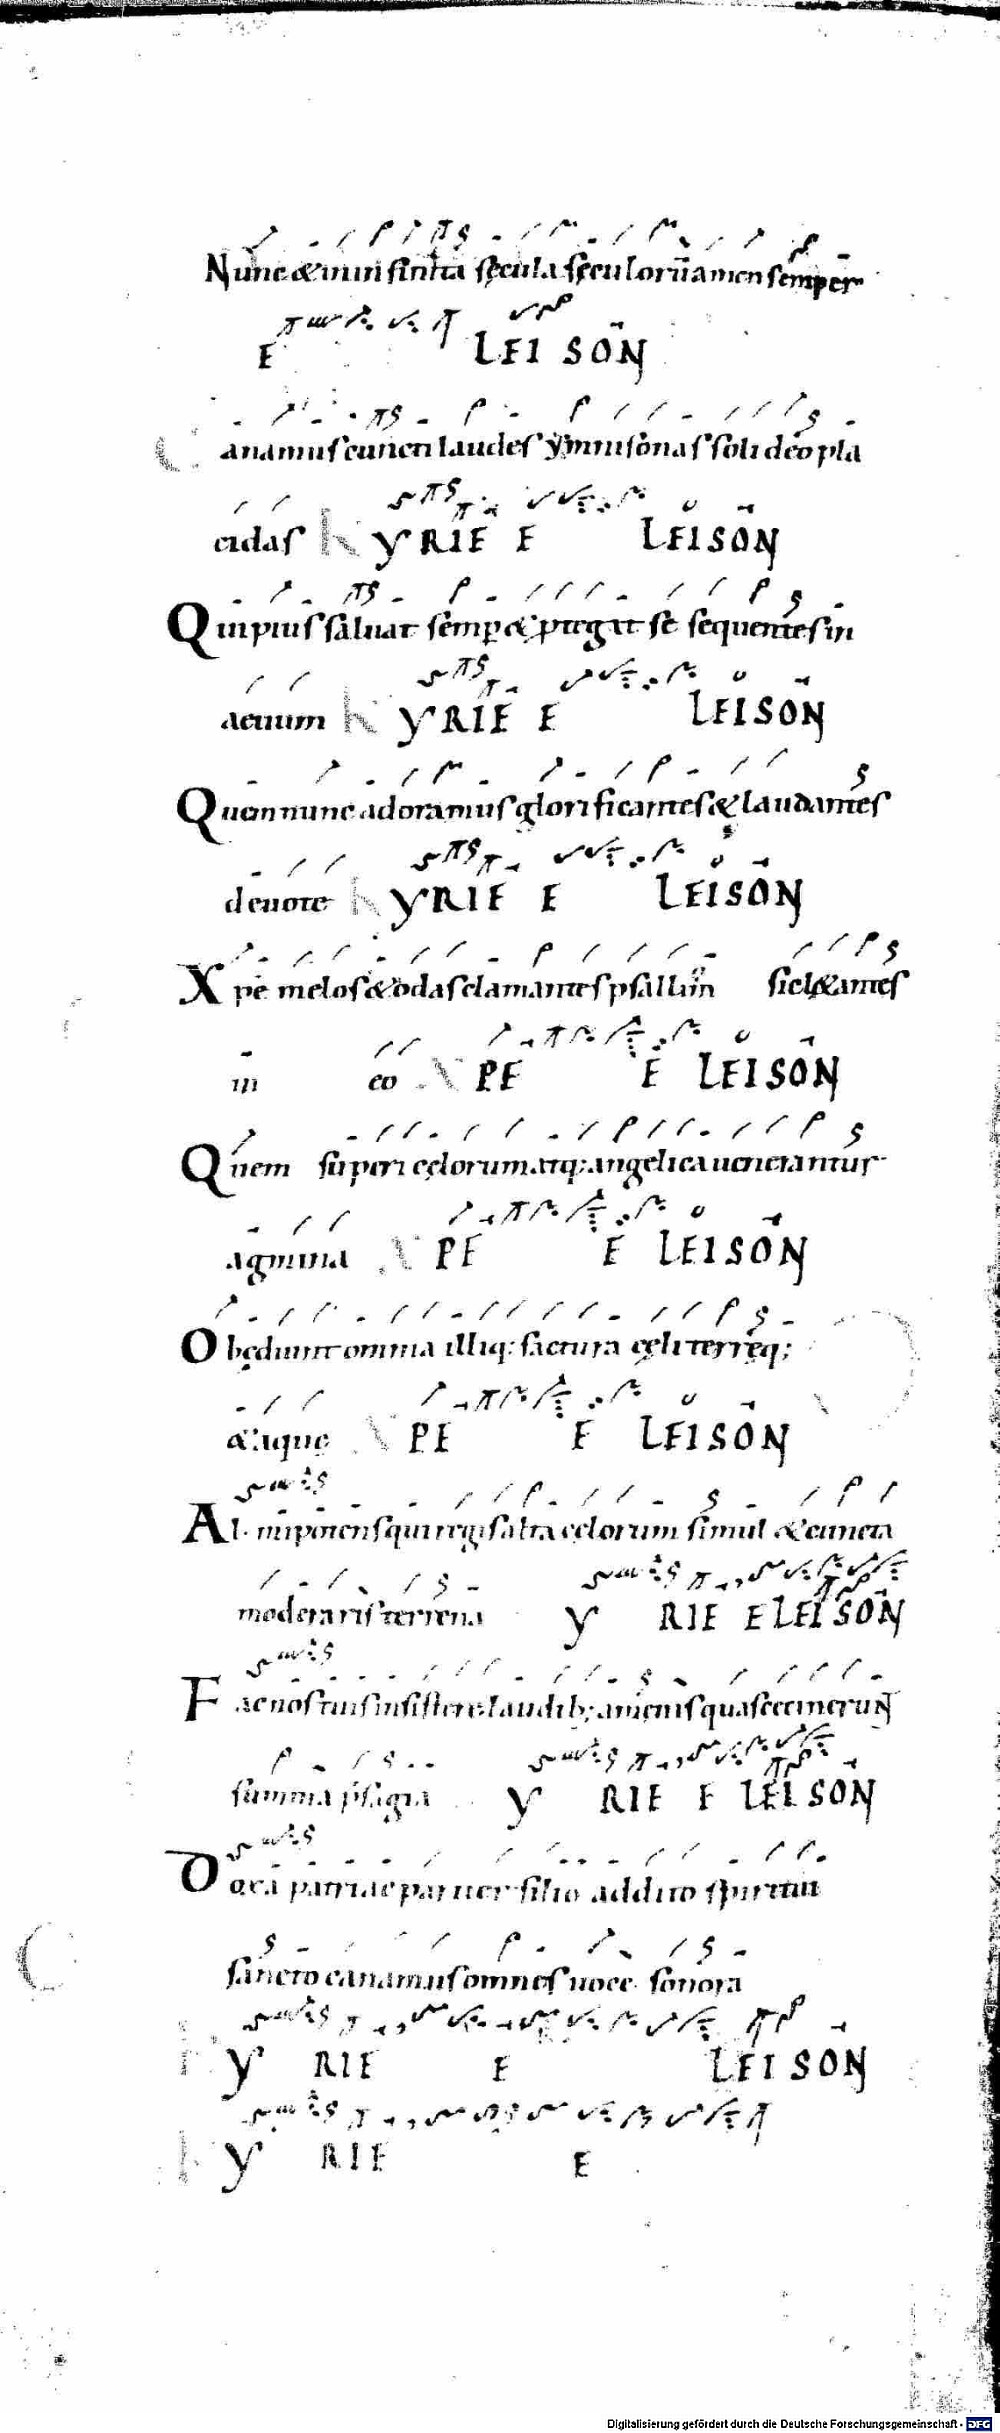 Nunc & in infinita sęcula sęculorū amen semper
E LEISON
Canamus cuncti laudes ymnisonas soli deo pla
cidas KYRIE E LEISON
Qui pius saluat semp & ptegit se sequentes in
aeuum KYRIE E LEISON
Quem nunc adoramus glorificantes & laudantes
deuote KYRIE E LEISON
Xpe melos & odas clamantes psallim sic l&antes
in eo XPE E LEISON
Quem superi cęlorum atq; angelica uenerantur
agmina XPE E LEISON
Obędiunt omnia illiq; factura cęli terręq;
&aque XPE E LEISON
Al mipotens qui regis alta cęlorum simul & cuncta
moderaris terrena Y RIE ELEISON
Fac nos tuis insistere laudib; amenis quas cecinerunt
summa psagia Y RIE E LEISON
Doxa patri ac pariter filio addito spiritui
sancto canamus omnes uoce sonora
KY RIE E LEISON
KY RIE E
Digitalisierung gefördert durch die Deutsche Forschungsgemeinschaft - DFG